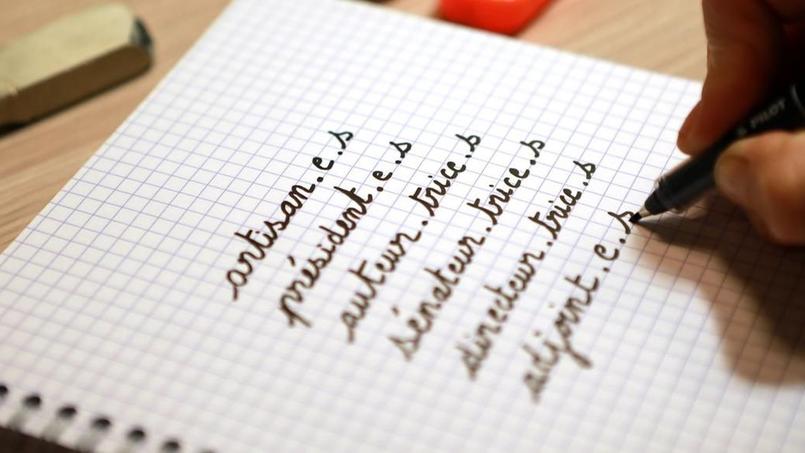 artisan.e.s
président.e.s
auteur.trice.s
sénateur.trice.s
directeur.trice.s
adjoint.e.s
PILOT